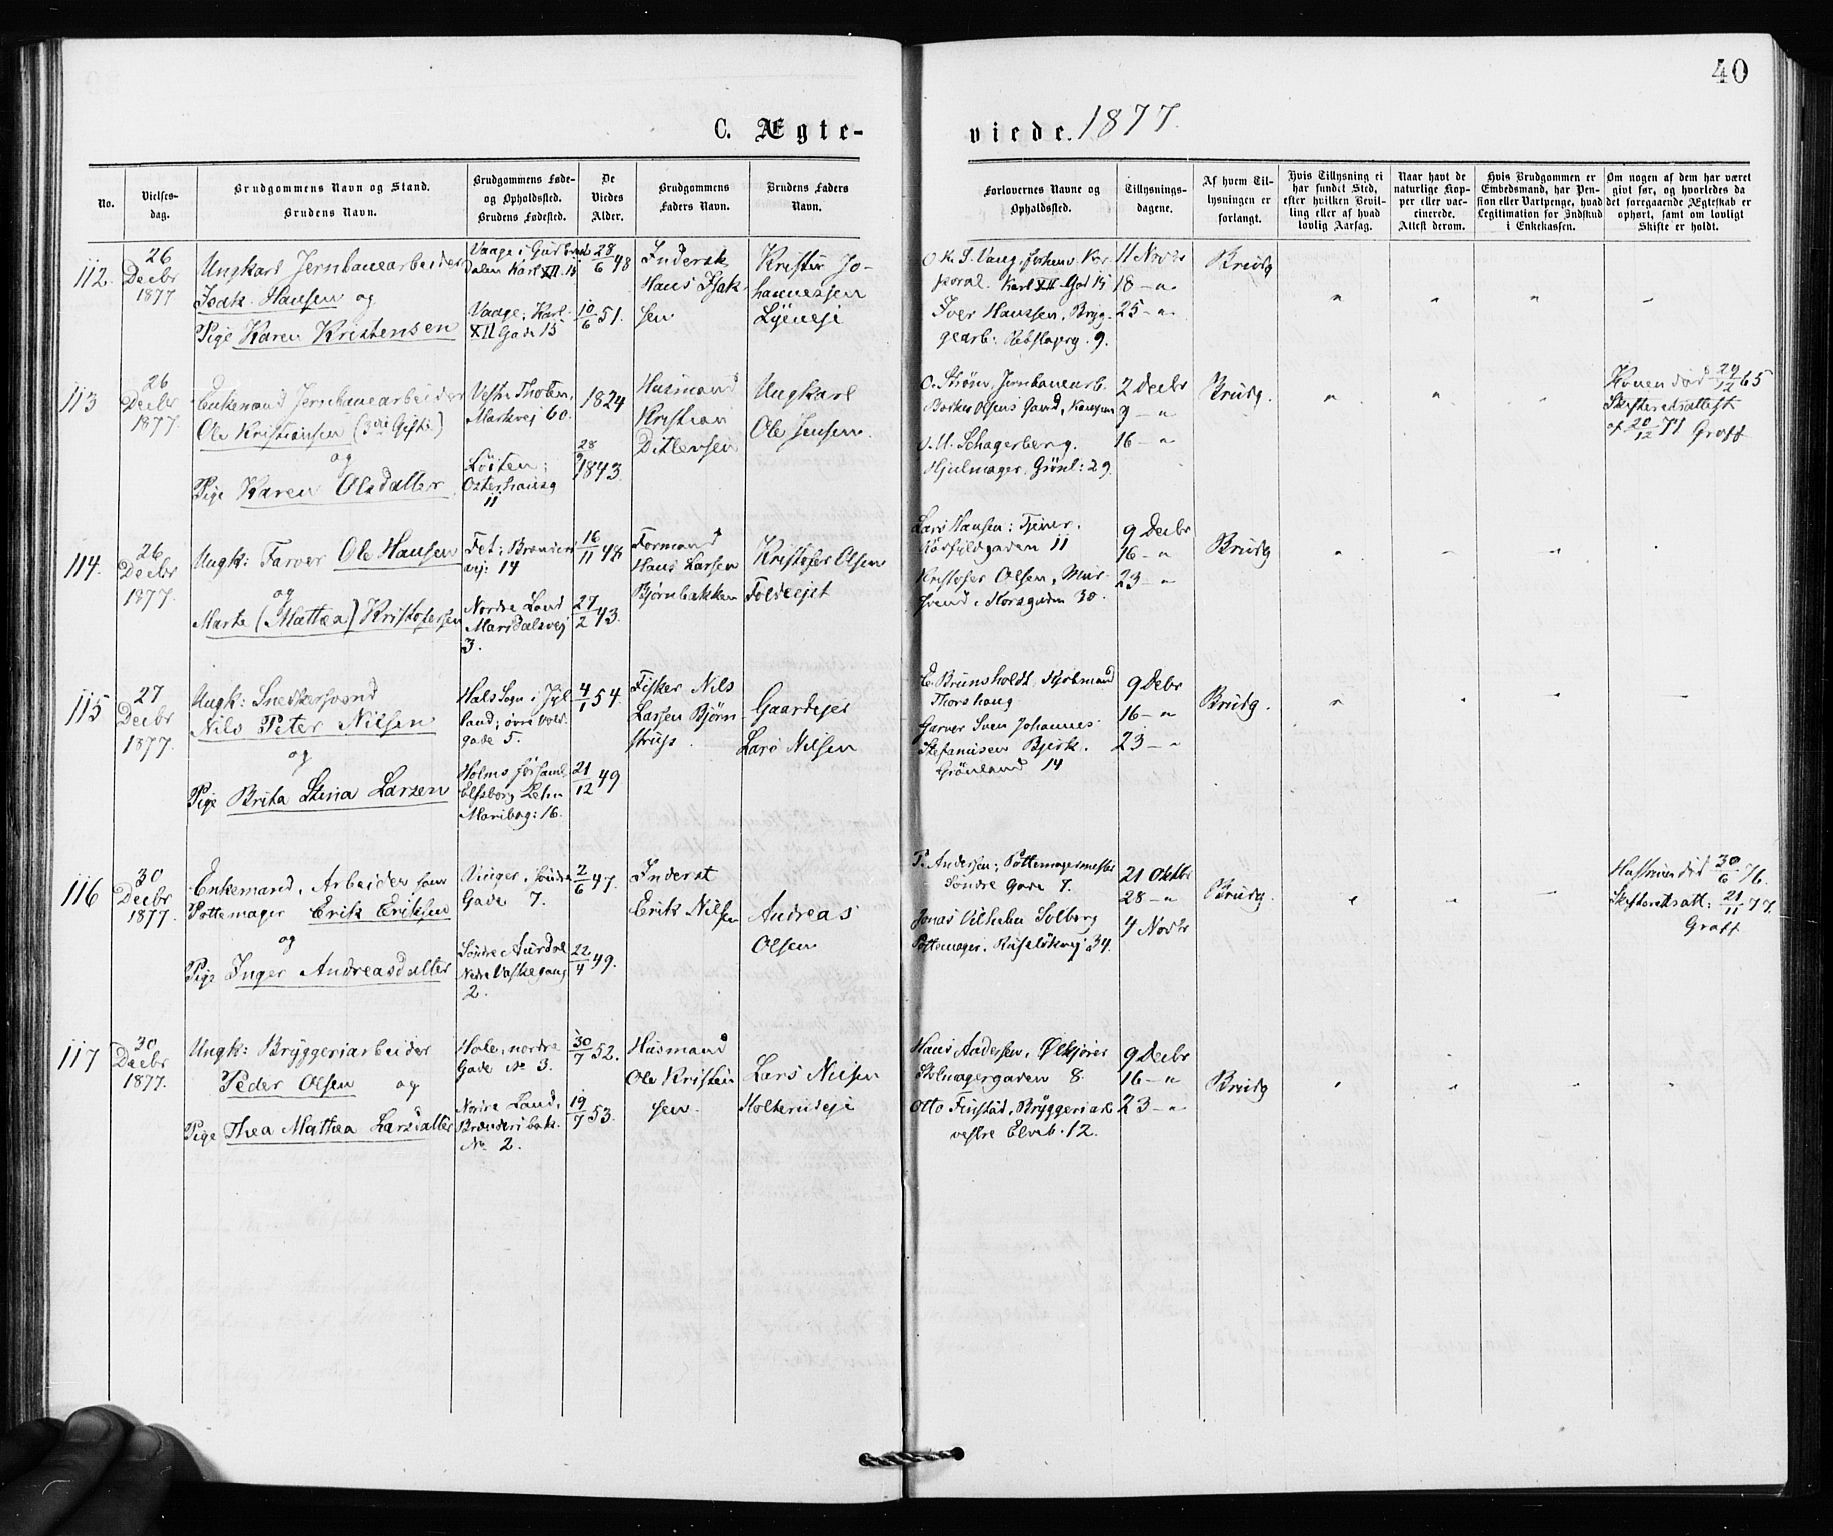 40
C. Ægte-
viede. 1877.
No.
Vielses-
dag.
Brudgommens Navn og Stand.
Brudens Navn.
Brudgommens Føde-
og Opholdssted.
Brudens Fødested.
De
Viedes
Alder.
Brudgommens
Faders Navn.
Brudens Faders
Navn.
Forlovernes Navne og
Opholdssted.
Tillysnings-
dagene.
Af hvem Til-
lysningen er
forlangt.
Hvis Tillysning ei
har fundet Sted,
efter hvilken Bevil-
ling eller af hvad
lovlig Aarsag.
Naar havt de
naturlige Kop-
per eller vac-
cinerede.
Attest derom.
Hvis Brudgommen er
Embedsmand, har Pen-
sion eller Vartpenge, hvad
Legitimation for Indskud
i Enkekassen.
Om nogen af dem har været
gift før, og hvorledes da
det foregaaende Ægteskab er
ophørt, samt om lovligt
Skifte er holdt.
112.
26
Decbr
1877
Ungkarl Jernbanearbeider
Isak Hansen og
Pige Karen Kristensen
Vaage i Gudbrands
dalen Karl XII 15
Vaage; Karl
XII Gade 15
28/6 48
10/6 51.
Inderst
Hans Isak
sen
Kristen Jo-
hannessen
Karl XII Gad 15
Iver Hanssen, Bryg-
gearb. Rebslagrg. 9.
11 Novbr
18 — "
25 — "
Brudg
113
26
Decbr
1877.
Enkemand Jernbanearbeider
Ole Kristiansen (3die Gifte)
og
Pige Karen Olsdatter
Vestr. Thoten,
Markvej 60.
Løiten;
Osterhausg
11
1824
28/9 1843.
Husmand
Kristian
Ditlevsen
Ungkarl
Ole Jensen.
O. Strøm, Jernbanearb.
Schagerberg.
Hjulmager. Grønl: 29.
2 Decbr
9 — "
16 — "
Brudg.
Konen død 29/12 65
Skifteretsattest
af 20/12 71 Graff
114.
26
Decbr
1877.
Ungk: Farver Ole Hansen
og
Marte (Mathea) Kristofersen
Fet; Brenderi
vej: 14
Nordre Land
Maridalsvej
3.
16/11 48
27/2 43.
Formand
Hans Larsen
Bjørnbakken
Kristofer Olsen
Lars Hansen; Tjener.
11
Kristofer Olsen, Mur-
svend, Torvgaden 30.
9 Decbr
16 — "
23 — "
Brudg
115
27
Decbr
1877.
Ungk: Snedkersvend
Nils Peter Nilsen
og
Pige Brita Stina Larsen
Hals Sogn i Jyl
land; øvre Vold
gade 5.
Holms forsaml.
Elfsborg Lehn
Maribog: 16.
4/1 54.
21/12 49
Fisker Nils
Larsen Bjørn
strup.
Gaardejer
Lars Nilsen
Thorshaug
Garver Sven Johannes
Stefanusen Bjerk.
Grønland 14
9 Debr
16 — "
23 — "
Brudg.
116
30
Decbr
1877.
Enkemand, Arbeider hos
Pottemager Erik Eriksen
og
Pige Inger Andreasdatter
Vinger; Søndre
Gade 7.
Søndre Aurdal
Nedre Vaskegang
2.
2/6 47.
22/4 49.
Inderst
Erik Nilsen
Andreas
Olsen
P. Andersen; Pottemagermester
Søndre Gade 7.
Jonas Vilhelm Solberg
Pottemager, Ruseløkvej 34.
21 Oktbr
28 — "
4 Novbr
Brudg.
Hustruen død 30/6 76.
Skifteretsatt: 21/11 77.
Graff
117
30
Decbr
1877.
Ungk: Bryggeriarbeider
Peder Olsen og
Pige Thea Mathea Larsdatter
Hole, nordre
Gade № 3.
Nordre Land,
Brenderibak.
№ 2.
30/7 52.
19/7 53.
Husmand
Ole Kristian
sen.
Lars Nilsen
Holterudeje
Hans Andersen, Ølkjører
Stolmagergaden 8.
Otto Finstad, Bryggeriarb
vestre Elveb. 12.
9 Decbr
16 — "
23 — "
Brudg